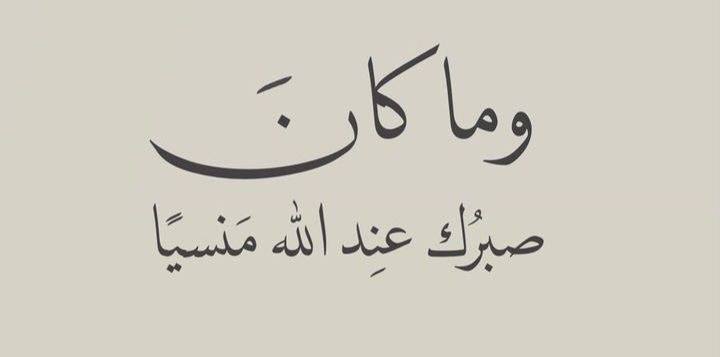 وما كانَ
صبرُك عنِد الله مَنسيًا